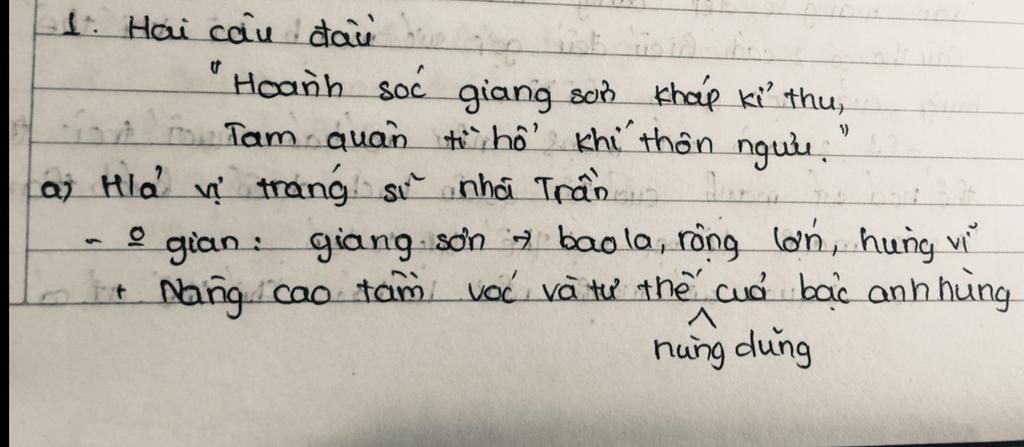 1. Hai câu đầu
"Hoành sóc giang sơn kháp kỉ thu,
Tam quân tì hổ khí thôn ngưu."
a) H/ả vị tráng sĩ nhà Trần
- º gian: giang sơn → bao la, rộng lớn, hùng vĩ
+ Nâng cao tầm vóc và tư thế của bậc anh hùng
^
hùng dũng